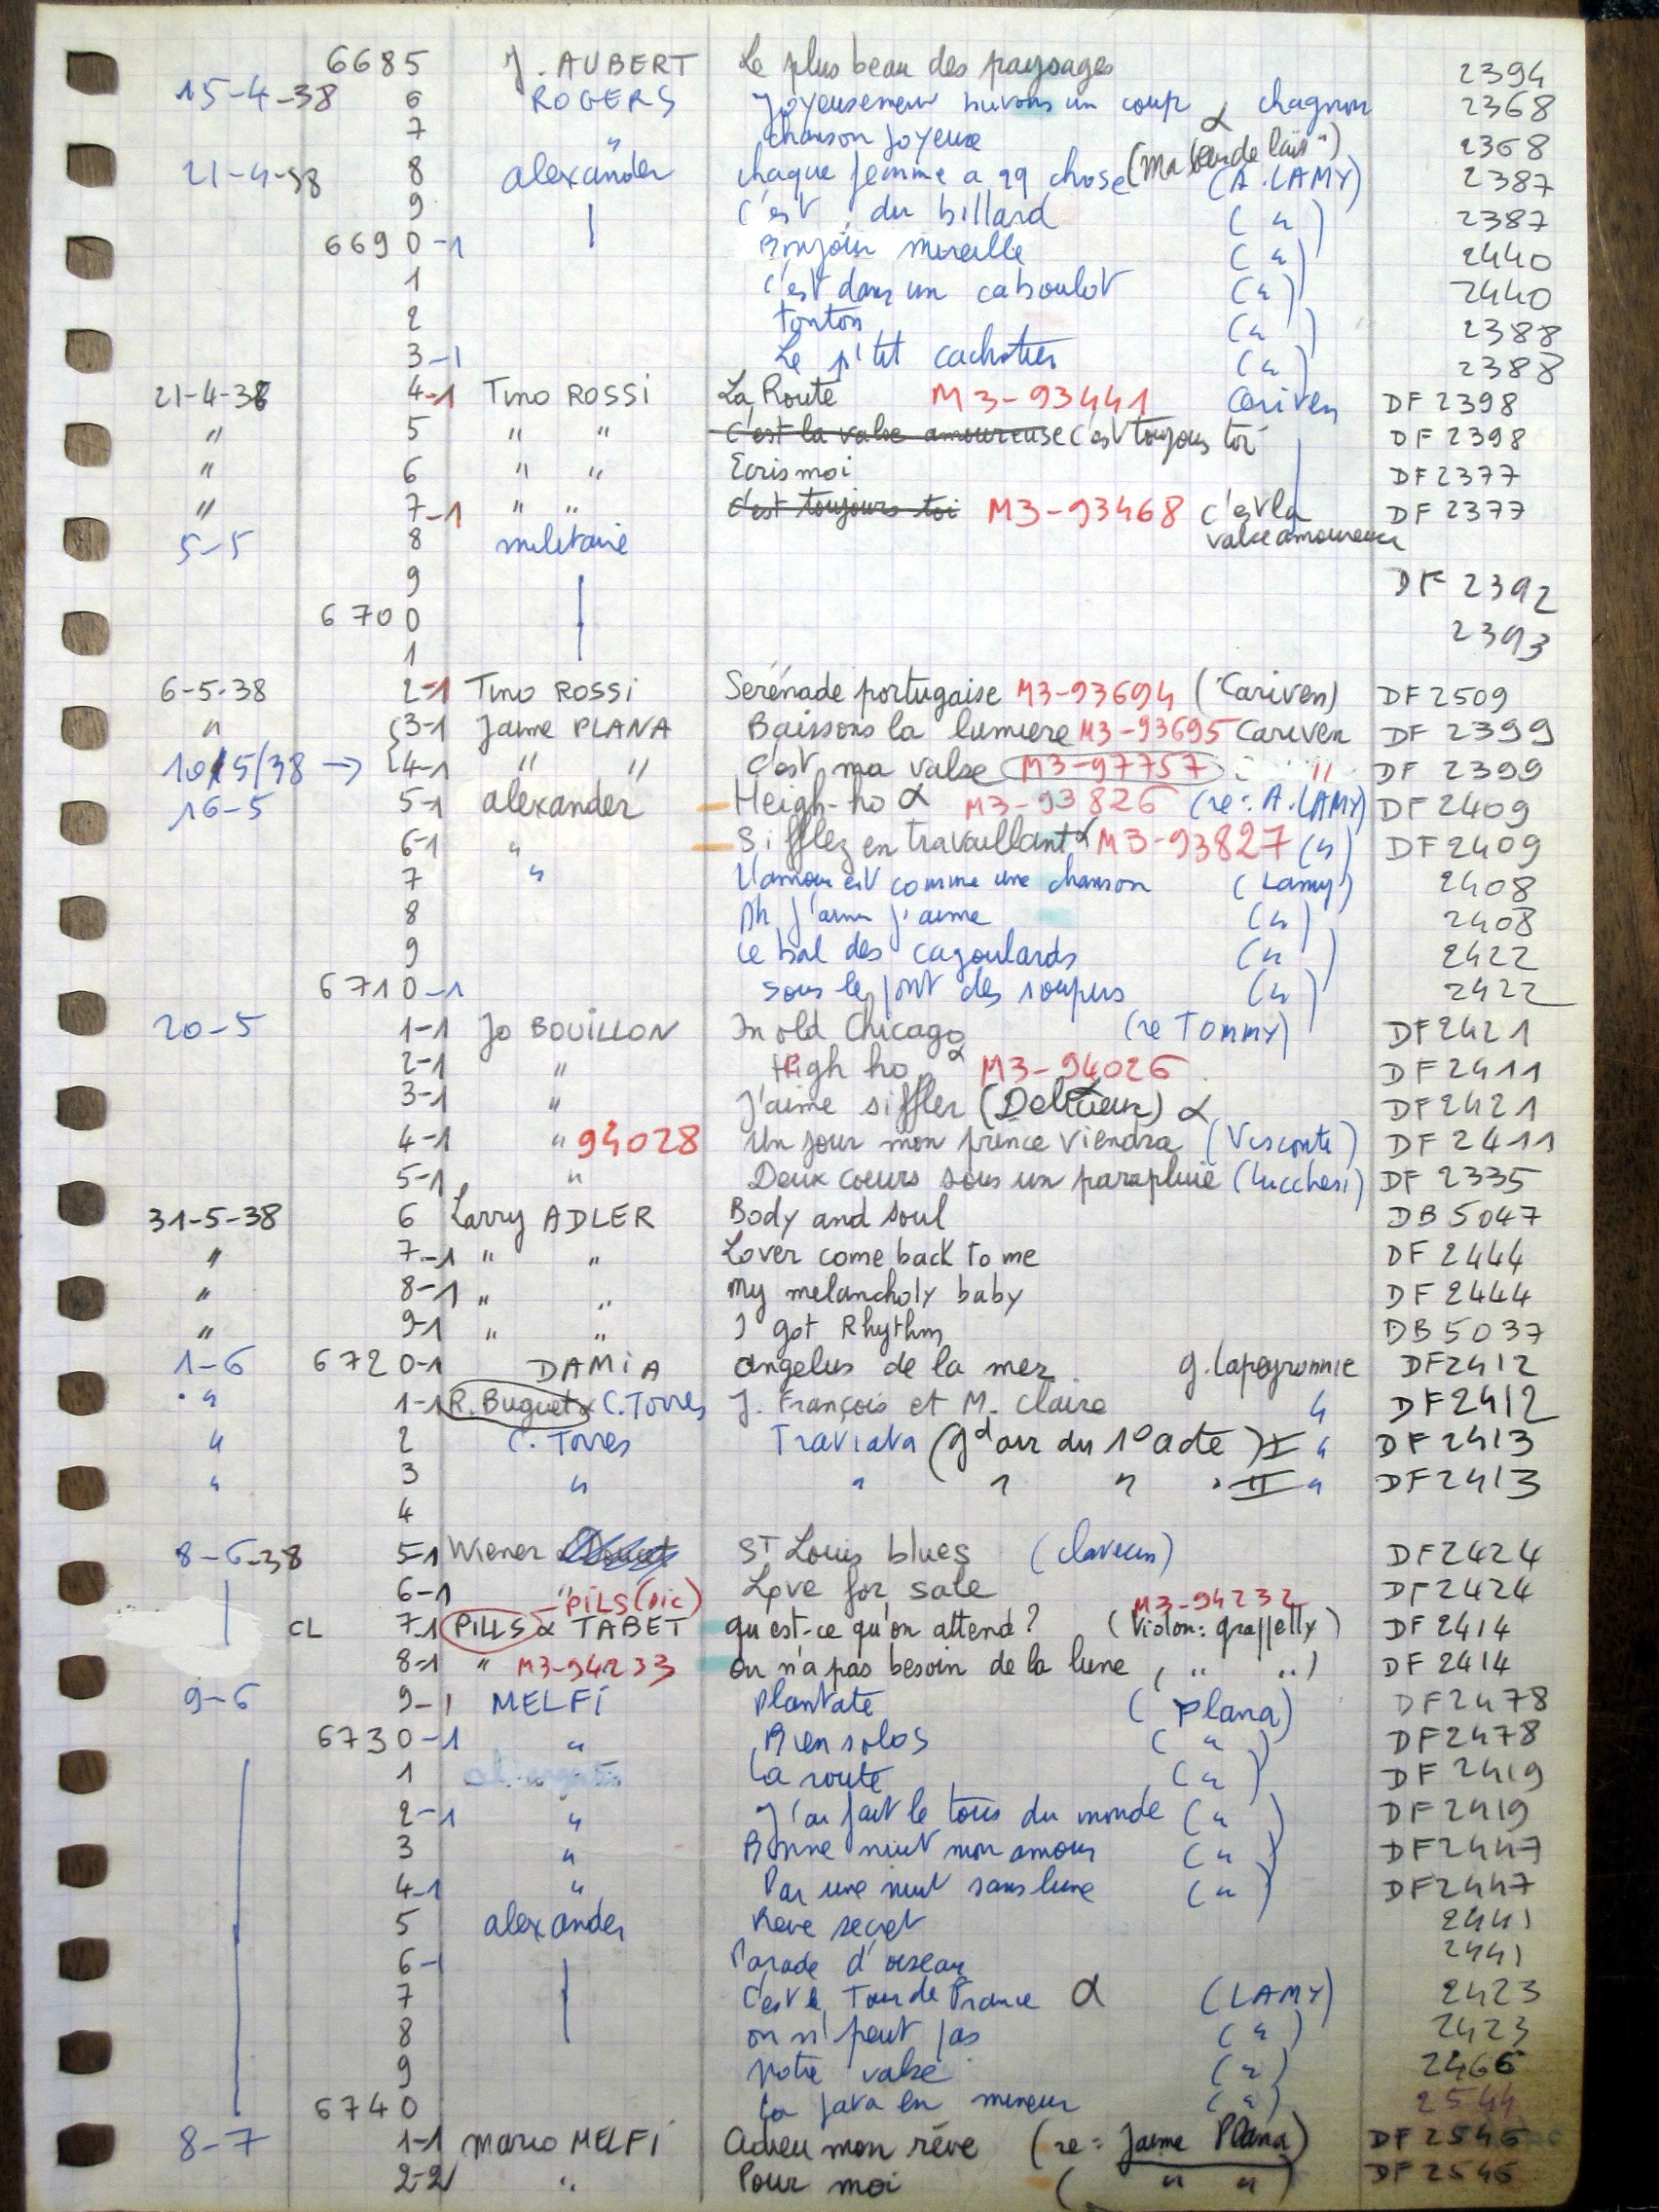 6685 J. AUBERT Le plus beau des paysages 2394
15-4-38 6 ROGERS Joyeusement buvons un coup α chagnon 2368
7 " chanson joyeuse 2368
21-4-38 8 alexander chaque femme a qq chose (ma (A. LAMY) 2387
9 c'est du billard ( " ) 2387
6690-1 Bonjour mireille ( " ) 2440
1 c'est dans un caboulot ( " ) 2440
2 tonton ( " ) 2388
3-1 Le p'tit cachotier ( " ) 2388
21-4-38 4-1 Tino ROSSI La Route M3-93441 Cariven DF 2398
" 5 " " c'est la valse amoureuse c'est toujours toi DF 2398
" 6 " " Ecris moi DF 2377
" 7-1 " " c'est toujours toi M3-93468 c'est la DF 2377
valse amoureuse
5-5 8 militaire
9 DF 2392
6700 2393
1
6-5-38 2-1 Tino ROSSI Serénade portugaise M3-93694 (Cariven) DF 2509
" 3-1 Jaime PLANA Baissons la lumiere M3-93695 Cariven DF 2399
10/5/38 → 4-1 " " c'est ma valse M3-97757 " DF 2399
16-5 5-1 alexander Heigh-ho α M3-93826 (re: A. LAMY) DF 2409
6-1 " Sifflez en travaillant α M3-93827 ( " ) DF 2409
7 " L'amour est comme une chanson (Lamy) 2408
8 Ah j'aime j'aime ( " ) 2408
9 Le bal des cagoulards ( " ) 2422
6710-1 sous le pont des soupirs ( " ) 2422
20-5 1-1 Jo BOUILLON In old Chicago (re TOMMY) DF 2421
2-1 " High ho α M3-94026 DF 2411
3-1 " J'aime siffler α DF 2421
4-1 " 94028 Un jour mon prince viendra (Visconti) DF 2411
5-1 " Deux coeurs sous un parapluie (Lucchesi) DF 2335
31-5-38 6 Larry ADLER Body and soul DB 5047
" 7-1 " " Lover come back to me DF 2444
" 8-1 " " My melancholy baby DF 2444
" 9-1 " " I got Rhythm DB 5037
1-6 6720-1 DAMIA angelus de la mer G. Lapeyronnie DF2412
" 1-1 R. Buguet & C. Torres J. François et M. Claire " DF2412
" 2 C. Torres Traviata (gd air du 1° acte) I " DF2413
" 3 " " " " " II " DF2413
4
8-6-38 5-1 Wiener St Louis blues (clavecin) DF2424
6-1 " Love for sale DF2424
PILS (sic) M3-94232
CL 7-1 PILLS & TABET qu'est-ce qu'on attend ? (Violon: grappelly) DF 2414
8-1 " M3-94233 on n'a pas besoin de la lune ( " " ) DF 2414
9-6 9-1 MELFI Plantate (Plana) DF2478
6730-1 " Bien solos ( " ) DF2478
1 La route ( " ) DF 2419
2-1 " J'ai fait le tour du monde ( " ) DF2419
3 " Bonne nuit mon amour ( " ) DF2447
4-1 " Par une nuit sans lune ( " ) DF2447
5 alexander Reve secret 2441
6-1 Parade d'oiseau 2441
7 C'est le Tour de France α (LAMY) 2423
8 on n'peut pas ( " ) 2423
9 Notre valse ( " ) 2466
6740 La java en mineur ( " ) 2544
8-7 1-1 Mario MELFI Adieu mon rêve (re: Jaime Plana) DF 2546
2-2 " Pour moi ( " " ) DF 2546